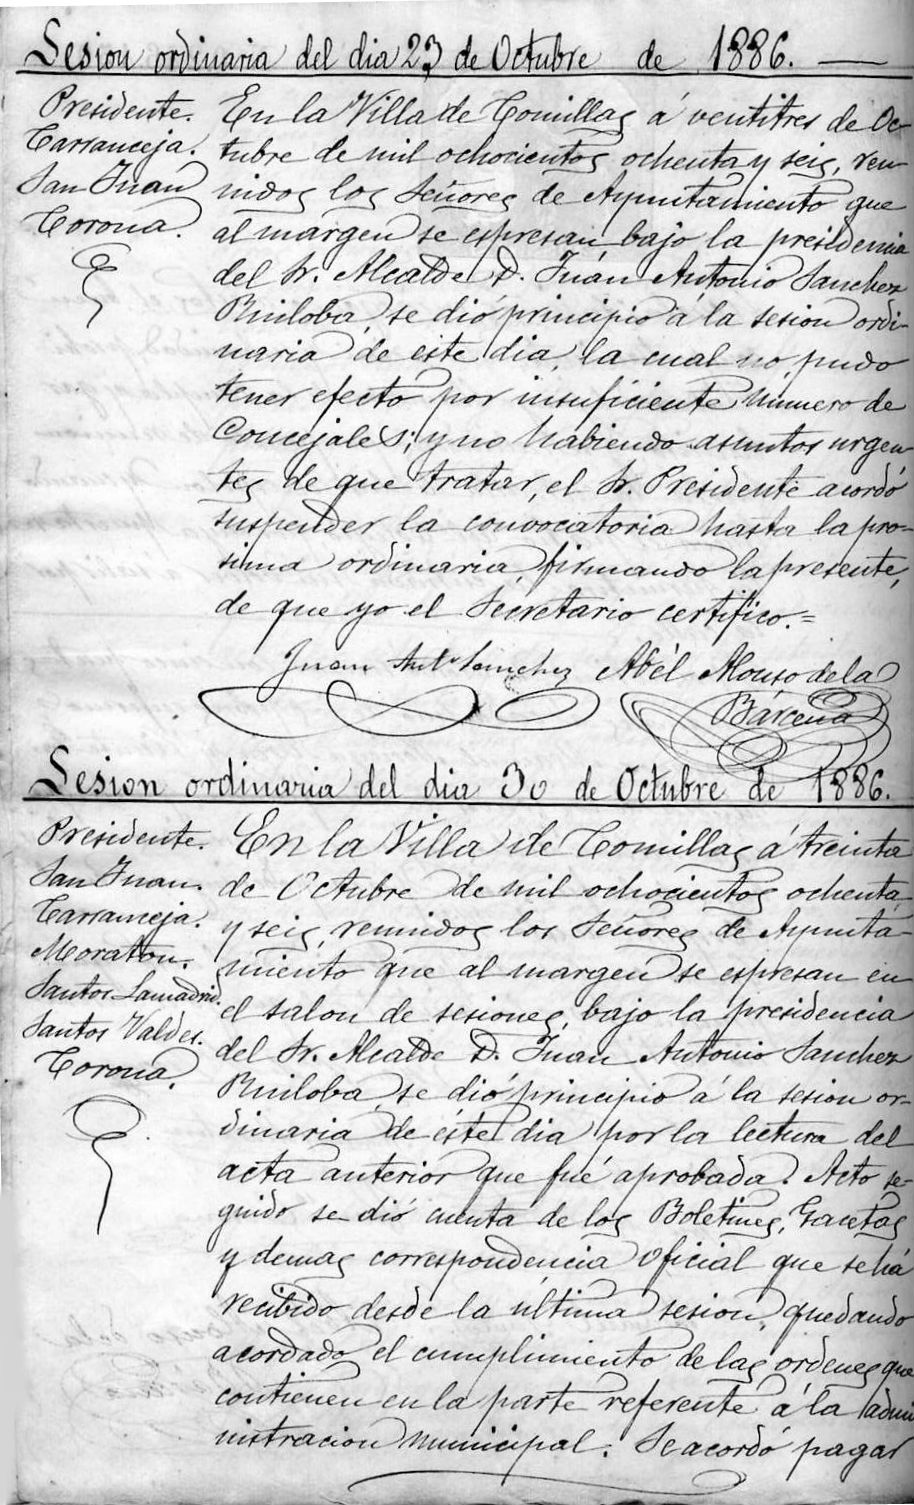 Sesion ordinaria del dia 23 de Octubre de 1886. —
Presidente.
Carranceja.
San Juan
Corona.
En la Villa de Comillas á ventitres de Oc-
tubre de mil ochocientos ochenta y seis, reu-
nidos los Señores de Ayuntamiento que
al margen se espresan bajo la presidencia
del Sr. Alcalde D. Juan Antonio Sanchez
Ruiloba, se dió principio á la sesion ordi-
naria de este dia, la cual no pudo
tener efecto por insuficiente numero de
Concejales; y no habiendo asuntos urgen-
tes de que tratar, el Sr. Presidente acordó
suspender la convocatoria hasta la pro-
sima ordinaria, firmando la presente,
de que yo el Secretario certifico.=
Juan Anto Sanchez Abél Alonso de la
Bárcena
Sesion ordinaria del dia 30 de Octubre de 1886.
Presidente.
San Juan.
Carranceja.
Moraton.
Santos Lamadrid.
Santos Valdes.
Corona.
En la Villa de Comillas á treinta
de Octubre de mil ochocientos ochenta
y seis, reunidos los Señores de Ayunta-
miento que al margen se espresan en
el salon de sesiones, bajo la presidencia
del Sr. Alcalde D. Juan Antonio Sanchez
Ruiloba, se dió principio á la sesion or-
dinaria de éste dia por la lectura del
acta anterior que fué aprobada. Acto se-
guido se dió cuenta de los Boletines, Gacetas
y demas correspondencia oficial que se há
recibido desde la última sesion, quedando
acordado el cumplimiento de las ordenes que
contienen en la parte referente á la admi
nistracion municipal. Se acordó pagar